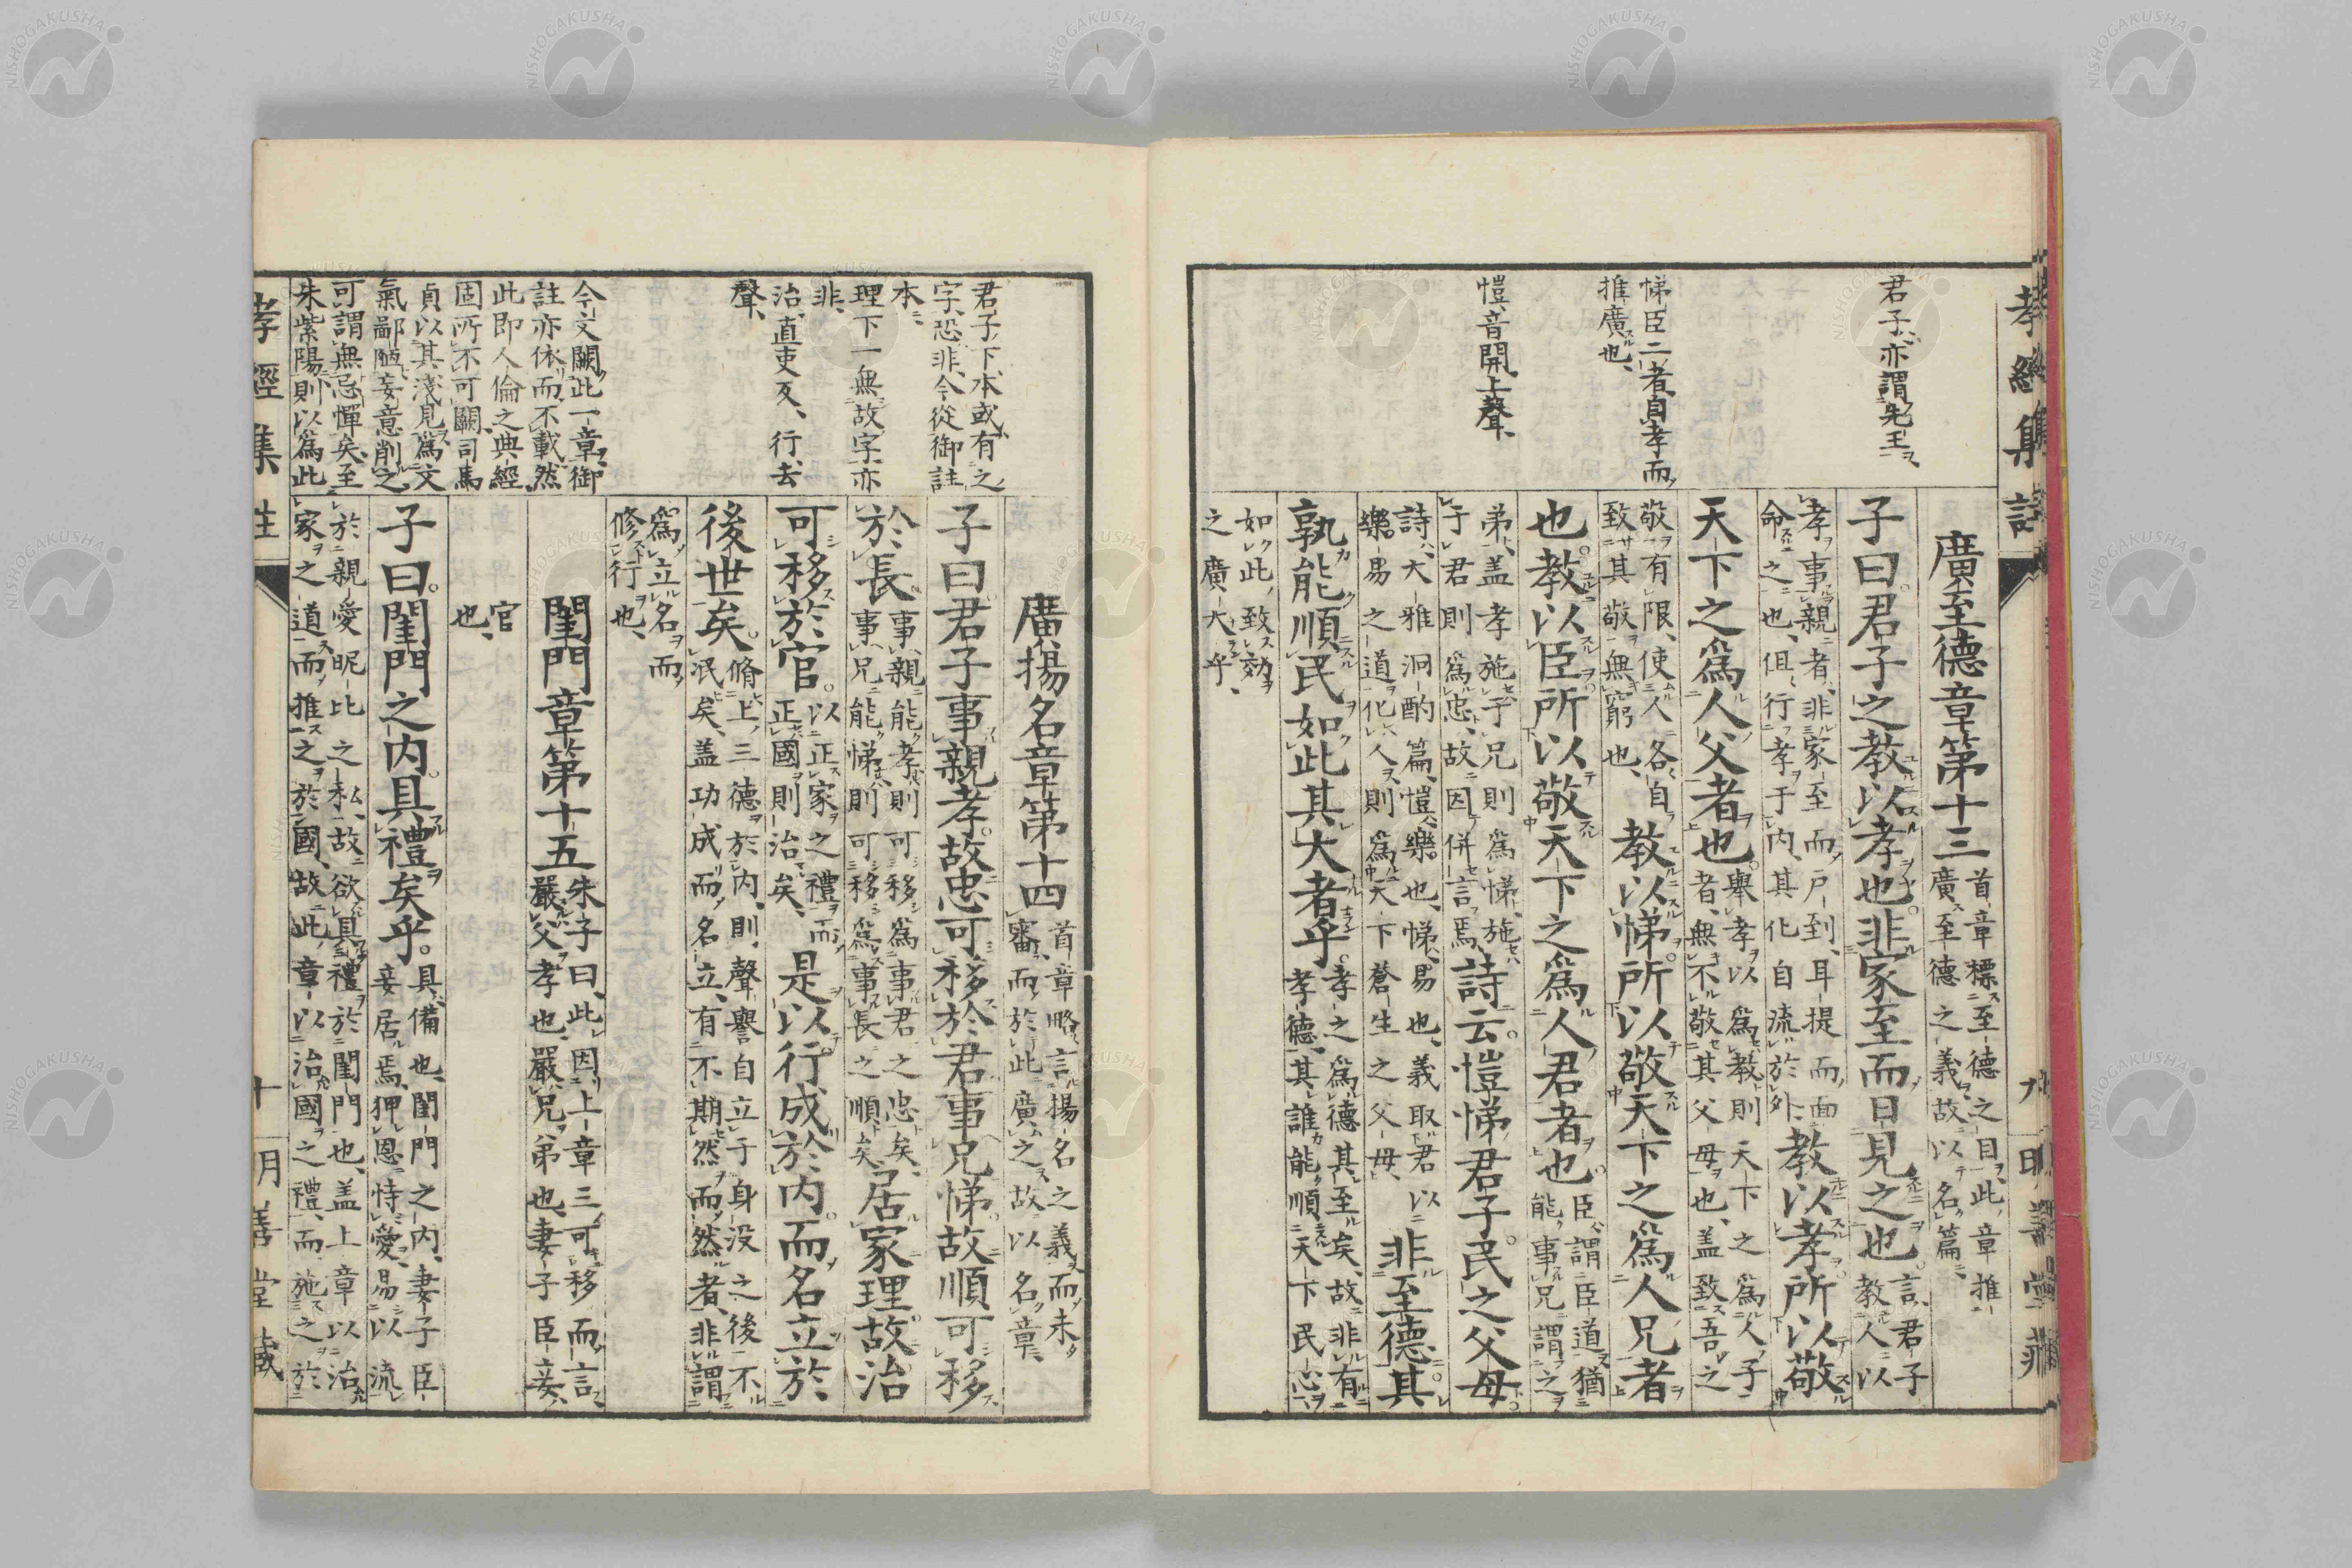 孝經集註
君子、亦謂先王、
悌臣二者、自孝而
推廣也、
愷、音開上聲、
廣至德章第十三
首章標至德之目、此章推
廣至德之義、故以名篇、
子曰。君子之教以孝也。非家至而日見之也。
言、君子
教人以
孝事親者、非家至而戸到、耳提而面
命之也、但行孝于内、其化自流於外
教以孝所以敬
天下之爲人父者也。
舉孝以爲教、則天下之爲人子
者、無不敬其父母也、盖致吾之
敬有限、使人各自
致其敬無窮也、
教以悌。所以敬天下之爲人兄者
也。教以臣。所以敬天下之爲人君者也。
臣、謂臣道、猶
能事兄謂之
弟、盖孝施于兄則爲悌、施
于君則爲忠、故因併言焉、
詩云。愷悌君子。民之父母。
詩、大雅泂酌篇、愷、樂也、悌、易也、義取君以
樂易之道化人、則爲天下蒼生之父母、
非至德。其
孰能順民如此其大者乎。
孝之爲德其至矣、故非有
孝德、其誰能順天下民心、
如此、致效
之廣大乎、
君子下、本或有之
字、恐非、今從御註
本、
理下一無故字、亦
非、
治、直吏反、行、去
聲、
今文闕此一章、御
註亦依而不載、然
此即人倫之典經、
固所不可闕、司馬
貞以其淺見爲文
氣鄙陋、妄意削之
可謂無忌憚矣、至
朱紫陽則以爲此
廣揚名章第十四
首章略言揚名之義、而未
審、而於此廣之、故以名章、
子曰君子事親孝。故忠可移於君。事兄悌。故順可移
於長。
事親能孝、則可移爲事君之忠矣、
事兄能悌、則可移爲事長之順矣、
居家理。故治
可移於官。
以正家之禮而
正國、則治矣、
是以行成於内。而名立於
後世矣。
脩上三德於内、則聲譽自立于身没之後不
泯矣、盖功成而名立、有不期然而然者、非謂
爲立名而
修行也、
閨門章第十五
朱子曰、此因上章三可移而言、
嚴父、孝也、嚴兄、弟也、妻子臣妾、
官
也、
子曰。閨門之内。具禮矣乎。
具、備也、閨門之内、妻子臣
妾居焉、狎恩恃愛、易以流
於親愛昵比之私、故欲具禮於閨門也、盖上章以治
家之道而推之於國、故此章以治國之禮、而施之於
孝經集註
十
明善堂藏